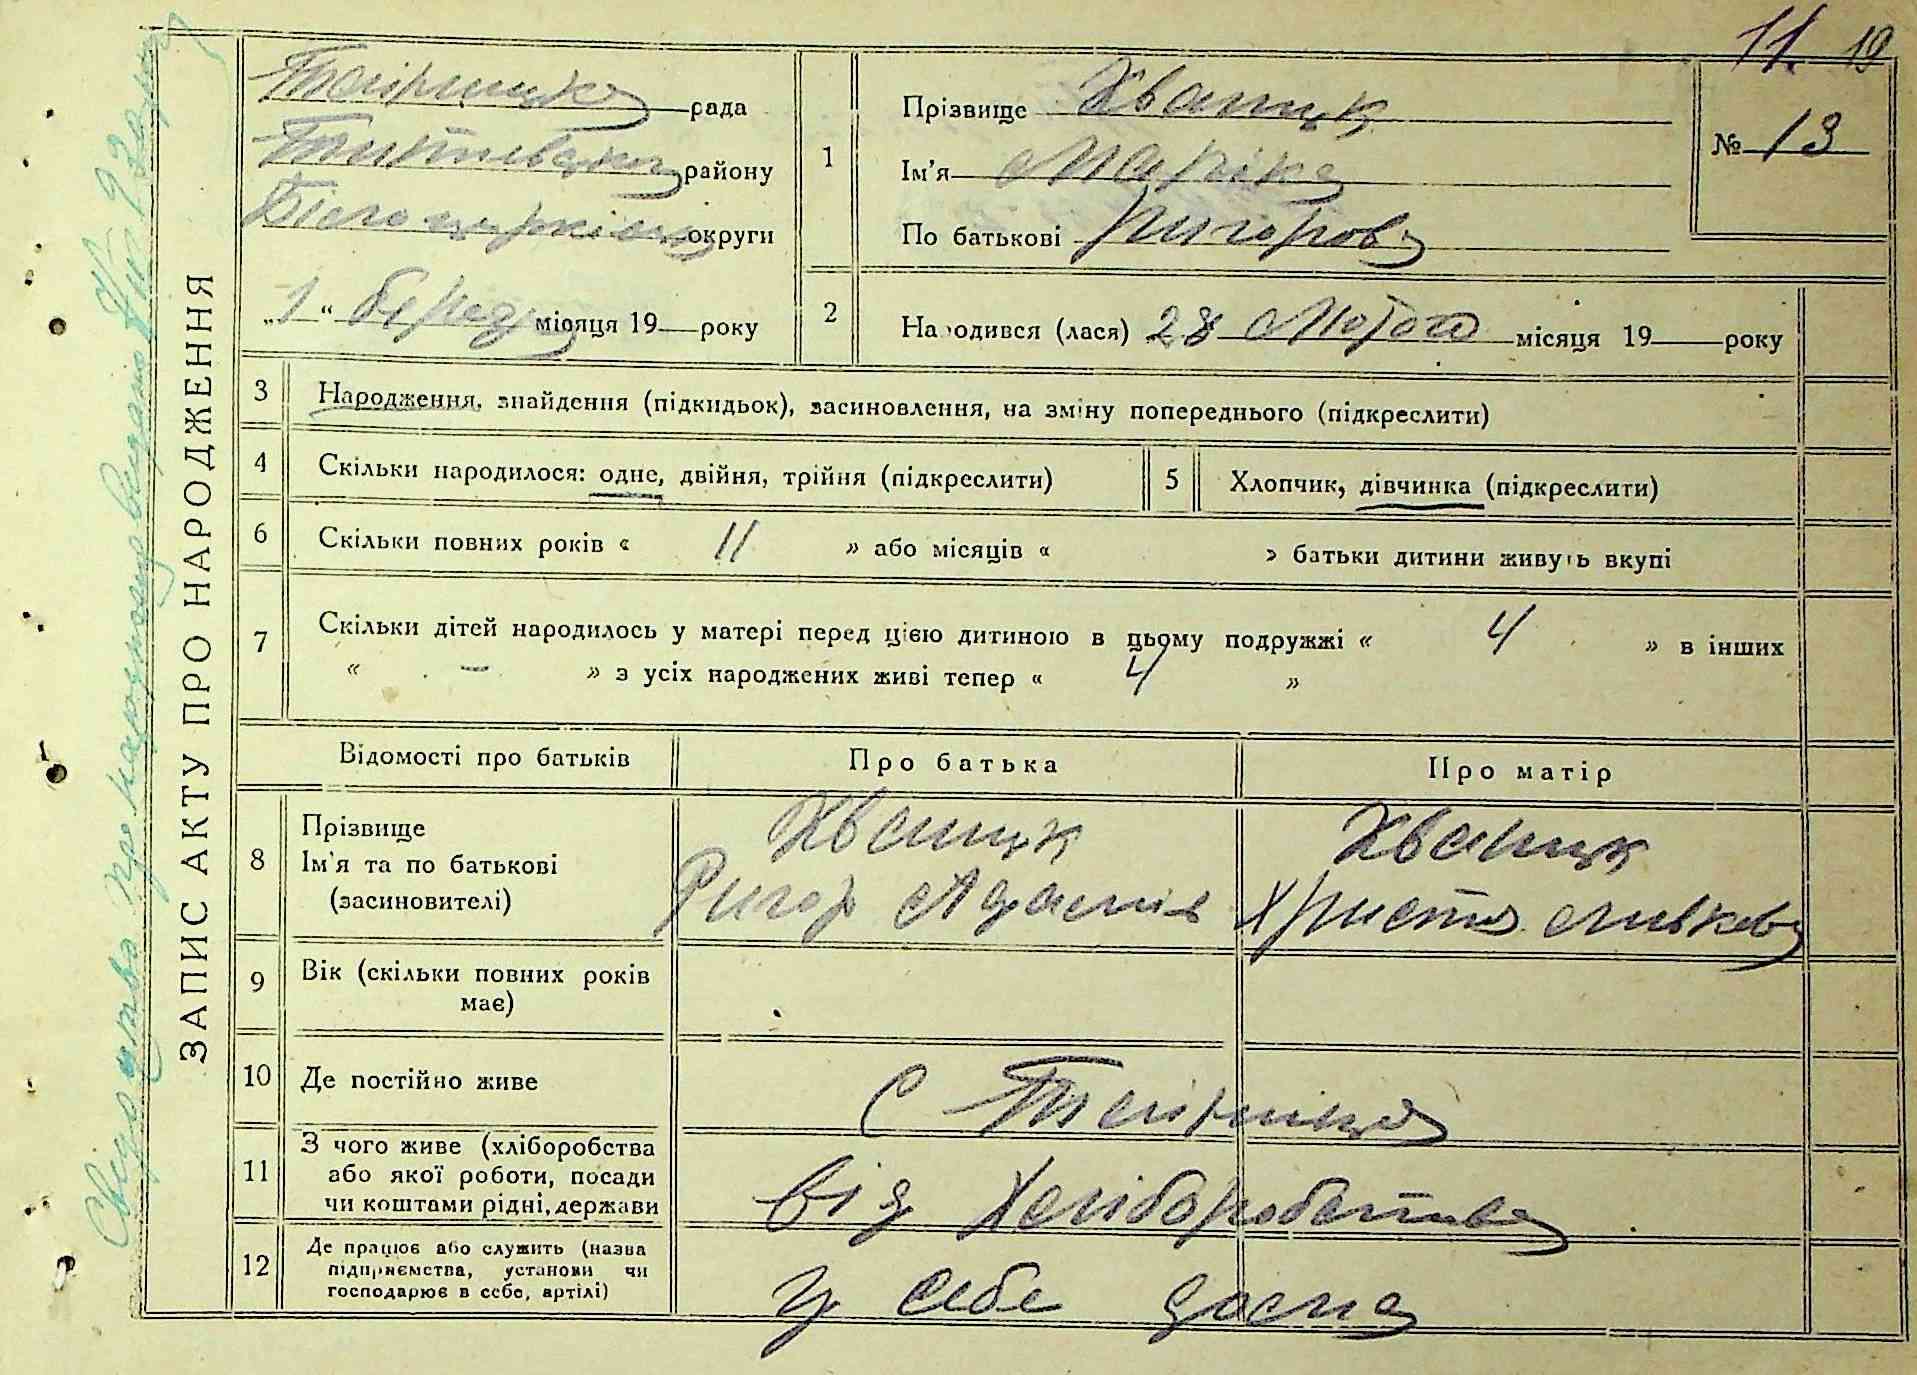 11. 19
ЗАПИС АКТУ ПРО НАРОДЖЕННЯ
рада
району
Білоцерківської округи
„1“ березня місяця 19 року
1
Прізвище Хванцк
Ім'я Маріка
По батькові Ригорова
№ 13
2
Народився (лася) 28 Лютого місяця 19 року
3
Народження, знайдення (підкидьок), засиновлення, на зміну попереднього (підкреслити)
4
Скільки народилося: одне, двійня, трійня (підкреслити)
5
Хлопчик, дівчинка (підкреслити)
6
Скільки повних років « 11 » або місяців « » батьки дитини живуть вкупі
7
Скільки дітей народилось у матері перед цією дитиною в цьому подружжі « 4 » в інших
« — » з усіх народжених живі тепер « 4 »
Відомості про батьків
Про батька
Про матір
8
Прізвище
Ім'я та по батькові
(засиновителі)
Хванцк
Ригор Адамів
Хванцк
Христя
9
Вік (скільки повних років
має)
10
Де постійно живе
с
11
З чого живе (хліборобства
або якої роботи, посади
чи коштами рідні, держави
від Хліборобства
12
Де працює або служить (назва
підприємства, установи чи
господарює в себе, артілі)
у себе дома